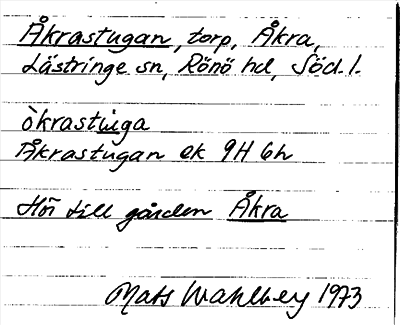 Åkrastugan, torp, Åkra,
Lästringe sn, Rönö hd, Söd. l.
òkrastu̇ga
Åkrastugan ek 9H 6h
Hör till gården Åkra
Mats Wahlberg 1973